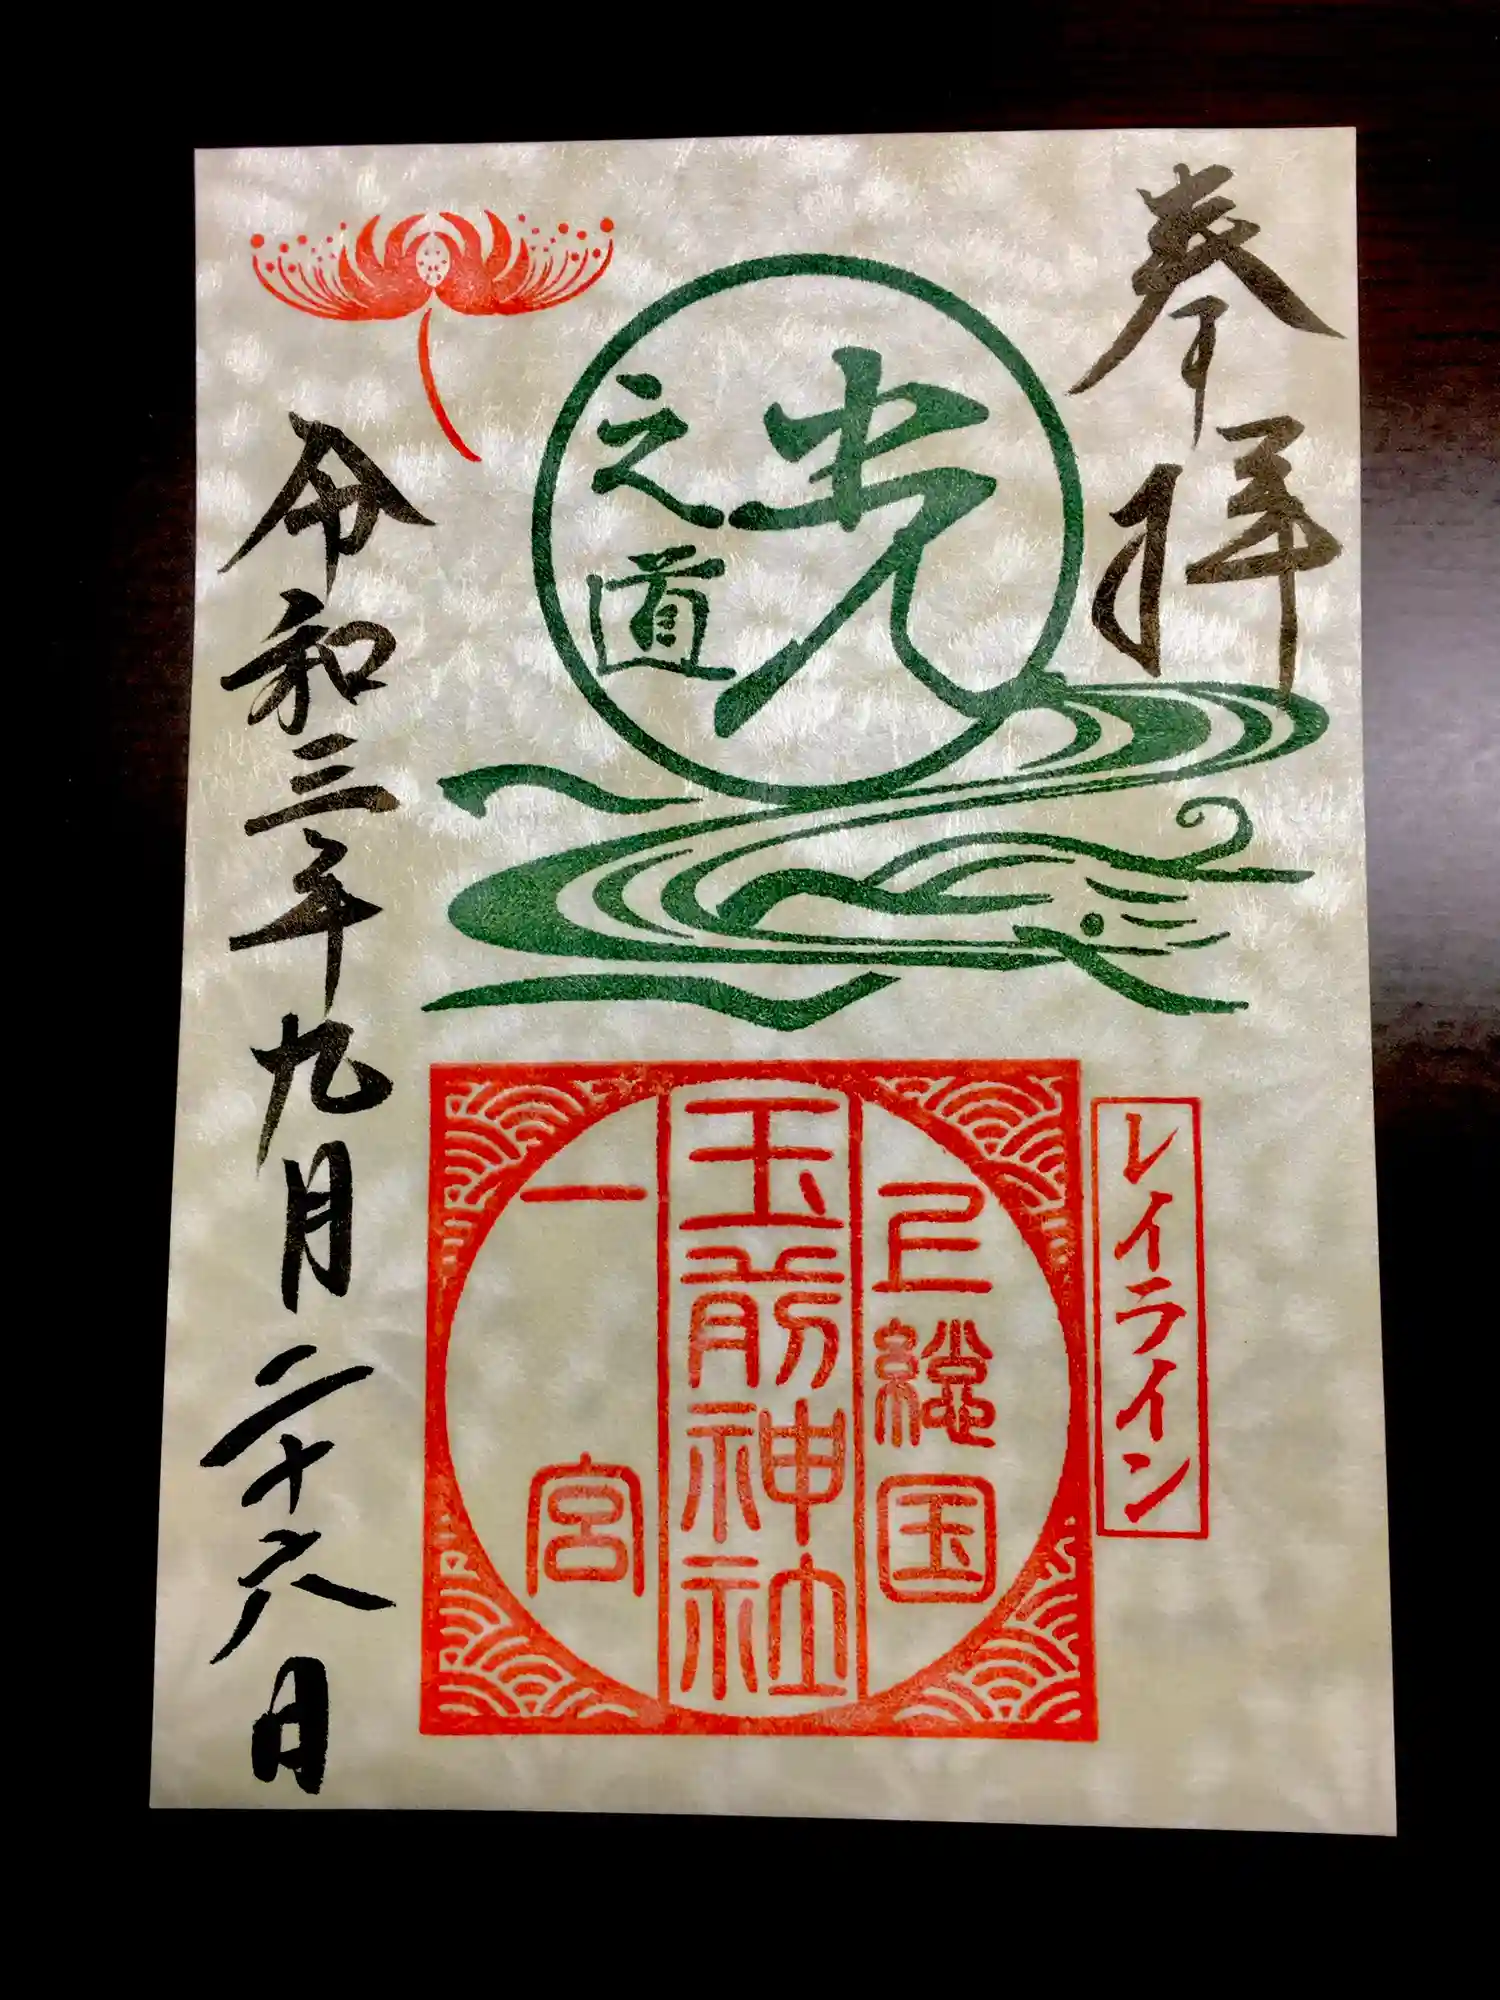 奉拝
レイライン
光
之道
上総国
玉前神社
一宮
令和三年九月二十六日